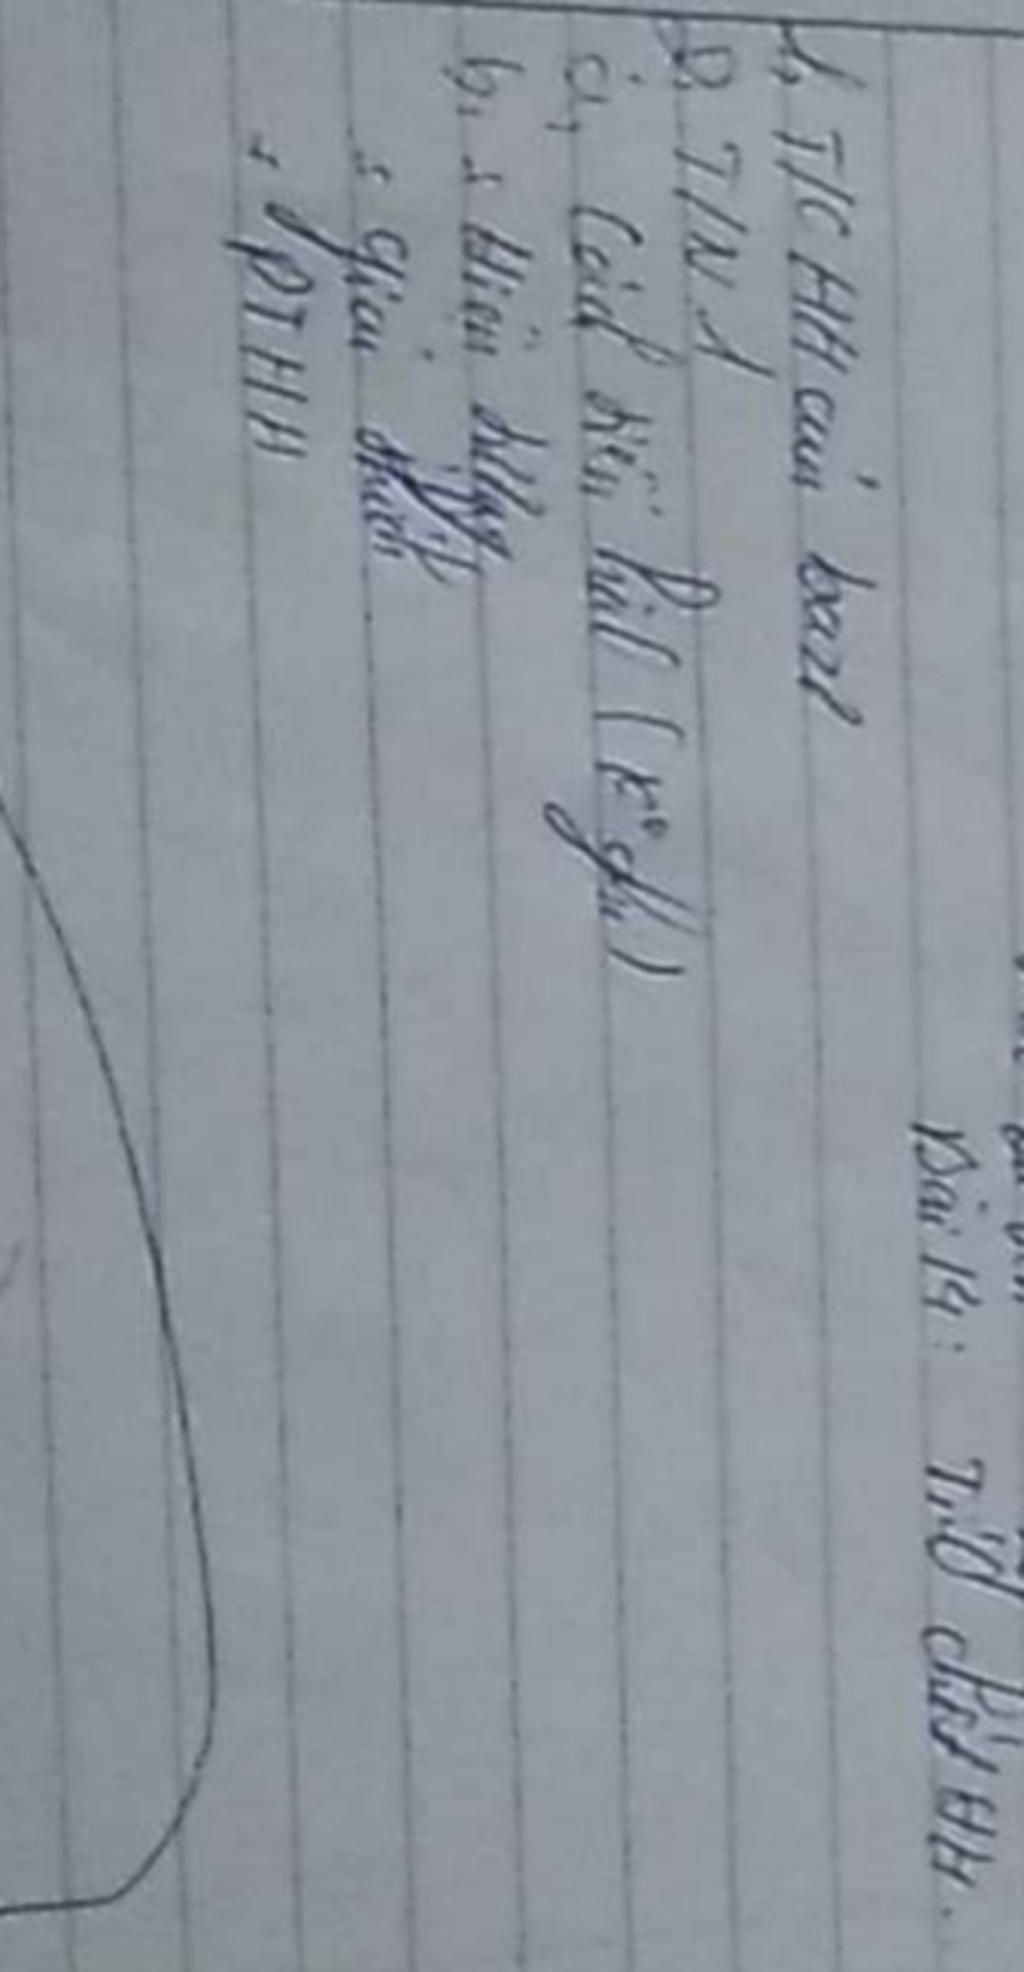 Bài 14: Tính chất HH.
I, T/C HH của bazơ
1) T/N 1
a, Cách tiến hành (k° ghi)
b, - Hiện tượng
- Giải thích
- PTHH